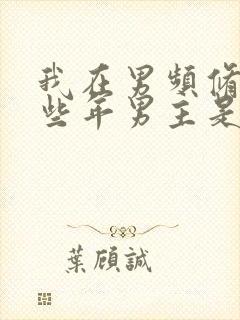 我在男頻脩
些年男主是
葉顧誠